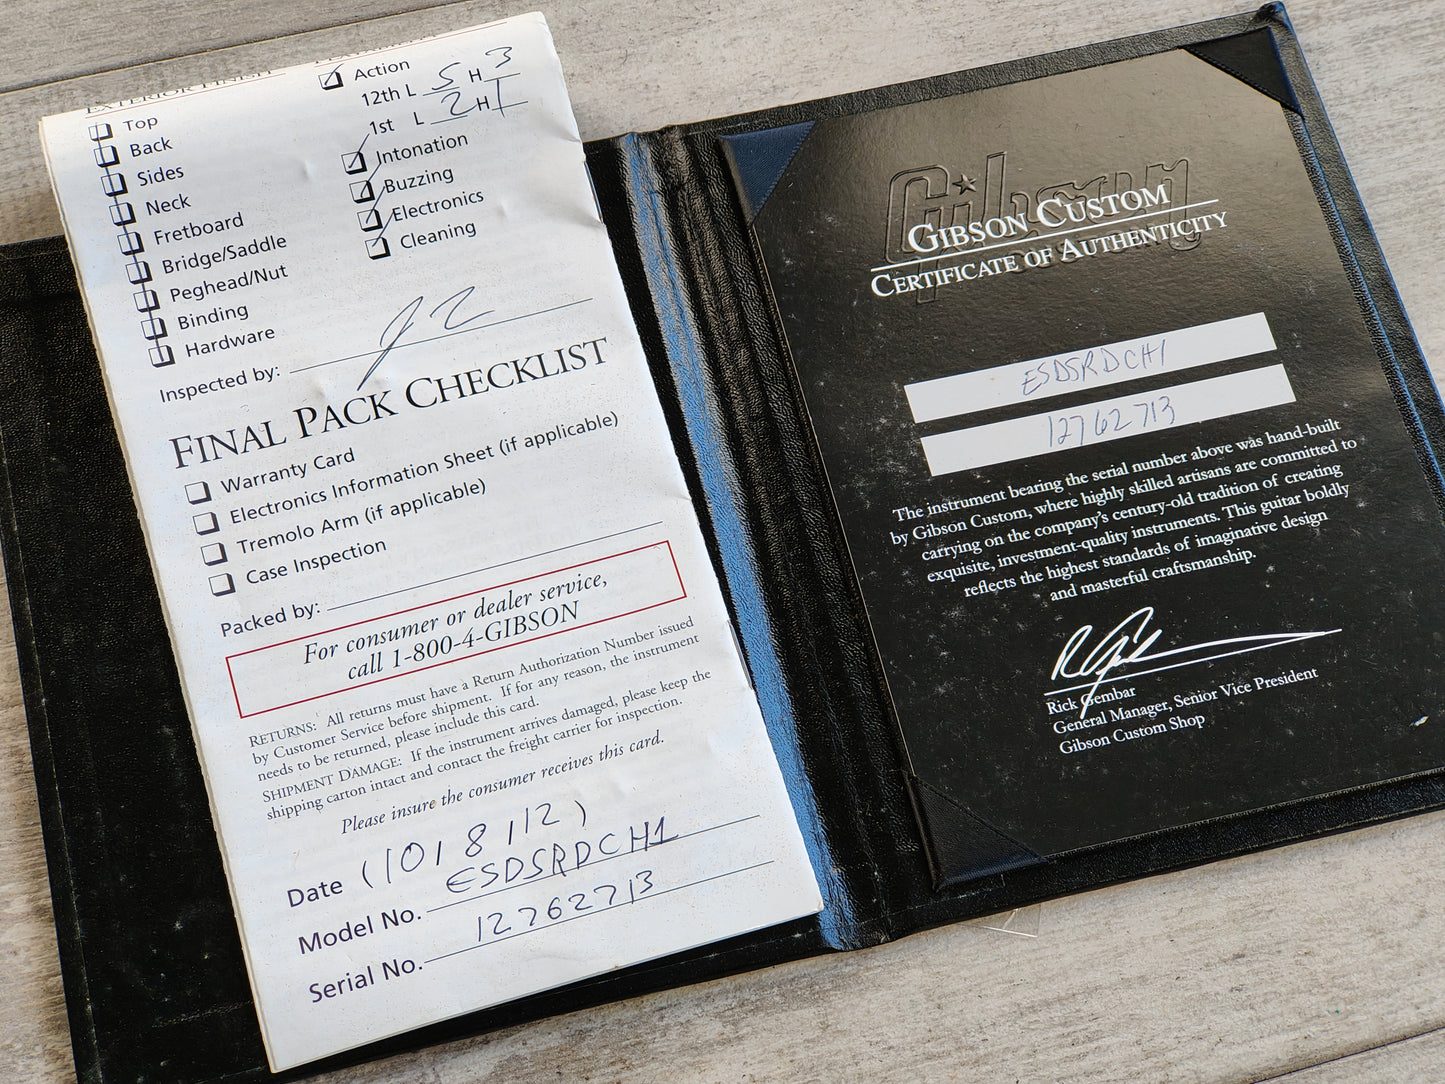 EXTERIOR FINISH
Top
Back
Sides
Neck
Fretboard
Bridge/Saddle
Peghead/Nut
Binding
Hardware
Action
12th L 5 H 3
1st L 2 H 1
Intonation
Buzzing
Electronics
Cleaning
Inspected by:
FINAL PACK CHECKLIST
Warranty Card
Electronics Information Sheet (if applicable)
Tremolo Arm (if applicable)
Case Inspection
Packed by:
For consumer or dealer service,
call 1-800-4-GIBSON
RETURNS: All returns must have a Return Authorization Number issued
by Customer Service before shipment. If for any reason, the instrument
needs to be returned, please include this card.
SHIPMENT DAMAGE: If the instrument arrives damaged, please keep the
shipping carton intact and contact the freight carrier for inspection.
Please insure the consumer receives this card.
Date (10/8/12)
Model No. ESDSRDCH1
Serial No. 12762713
Gibson
GIBSON CUSTOM
CERTIFICATE OF AUTHENTICITY
ESDSRDCH1
12762713
The instrument bearing the serial number above was hand-built
by Gibson Custom, where highly skilled artisans are committed to
carrying on the company's century-old tradition of creating
exquisite, investment-quality instruments. This guitar boldly
reflects the highest standards of imaginative design
and masterful craftsmanship.
Rick Gembar
General Manager, Senior Vice President
Gibson Custom Shop